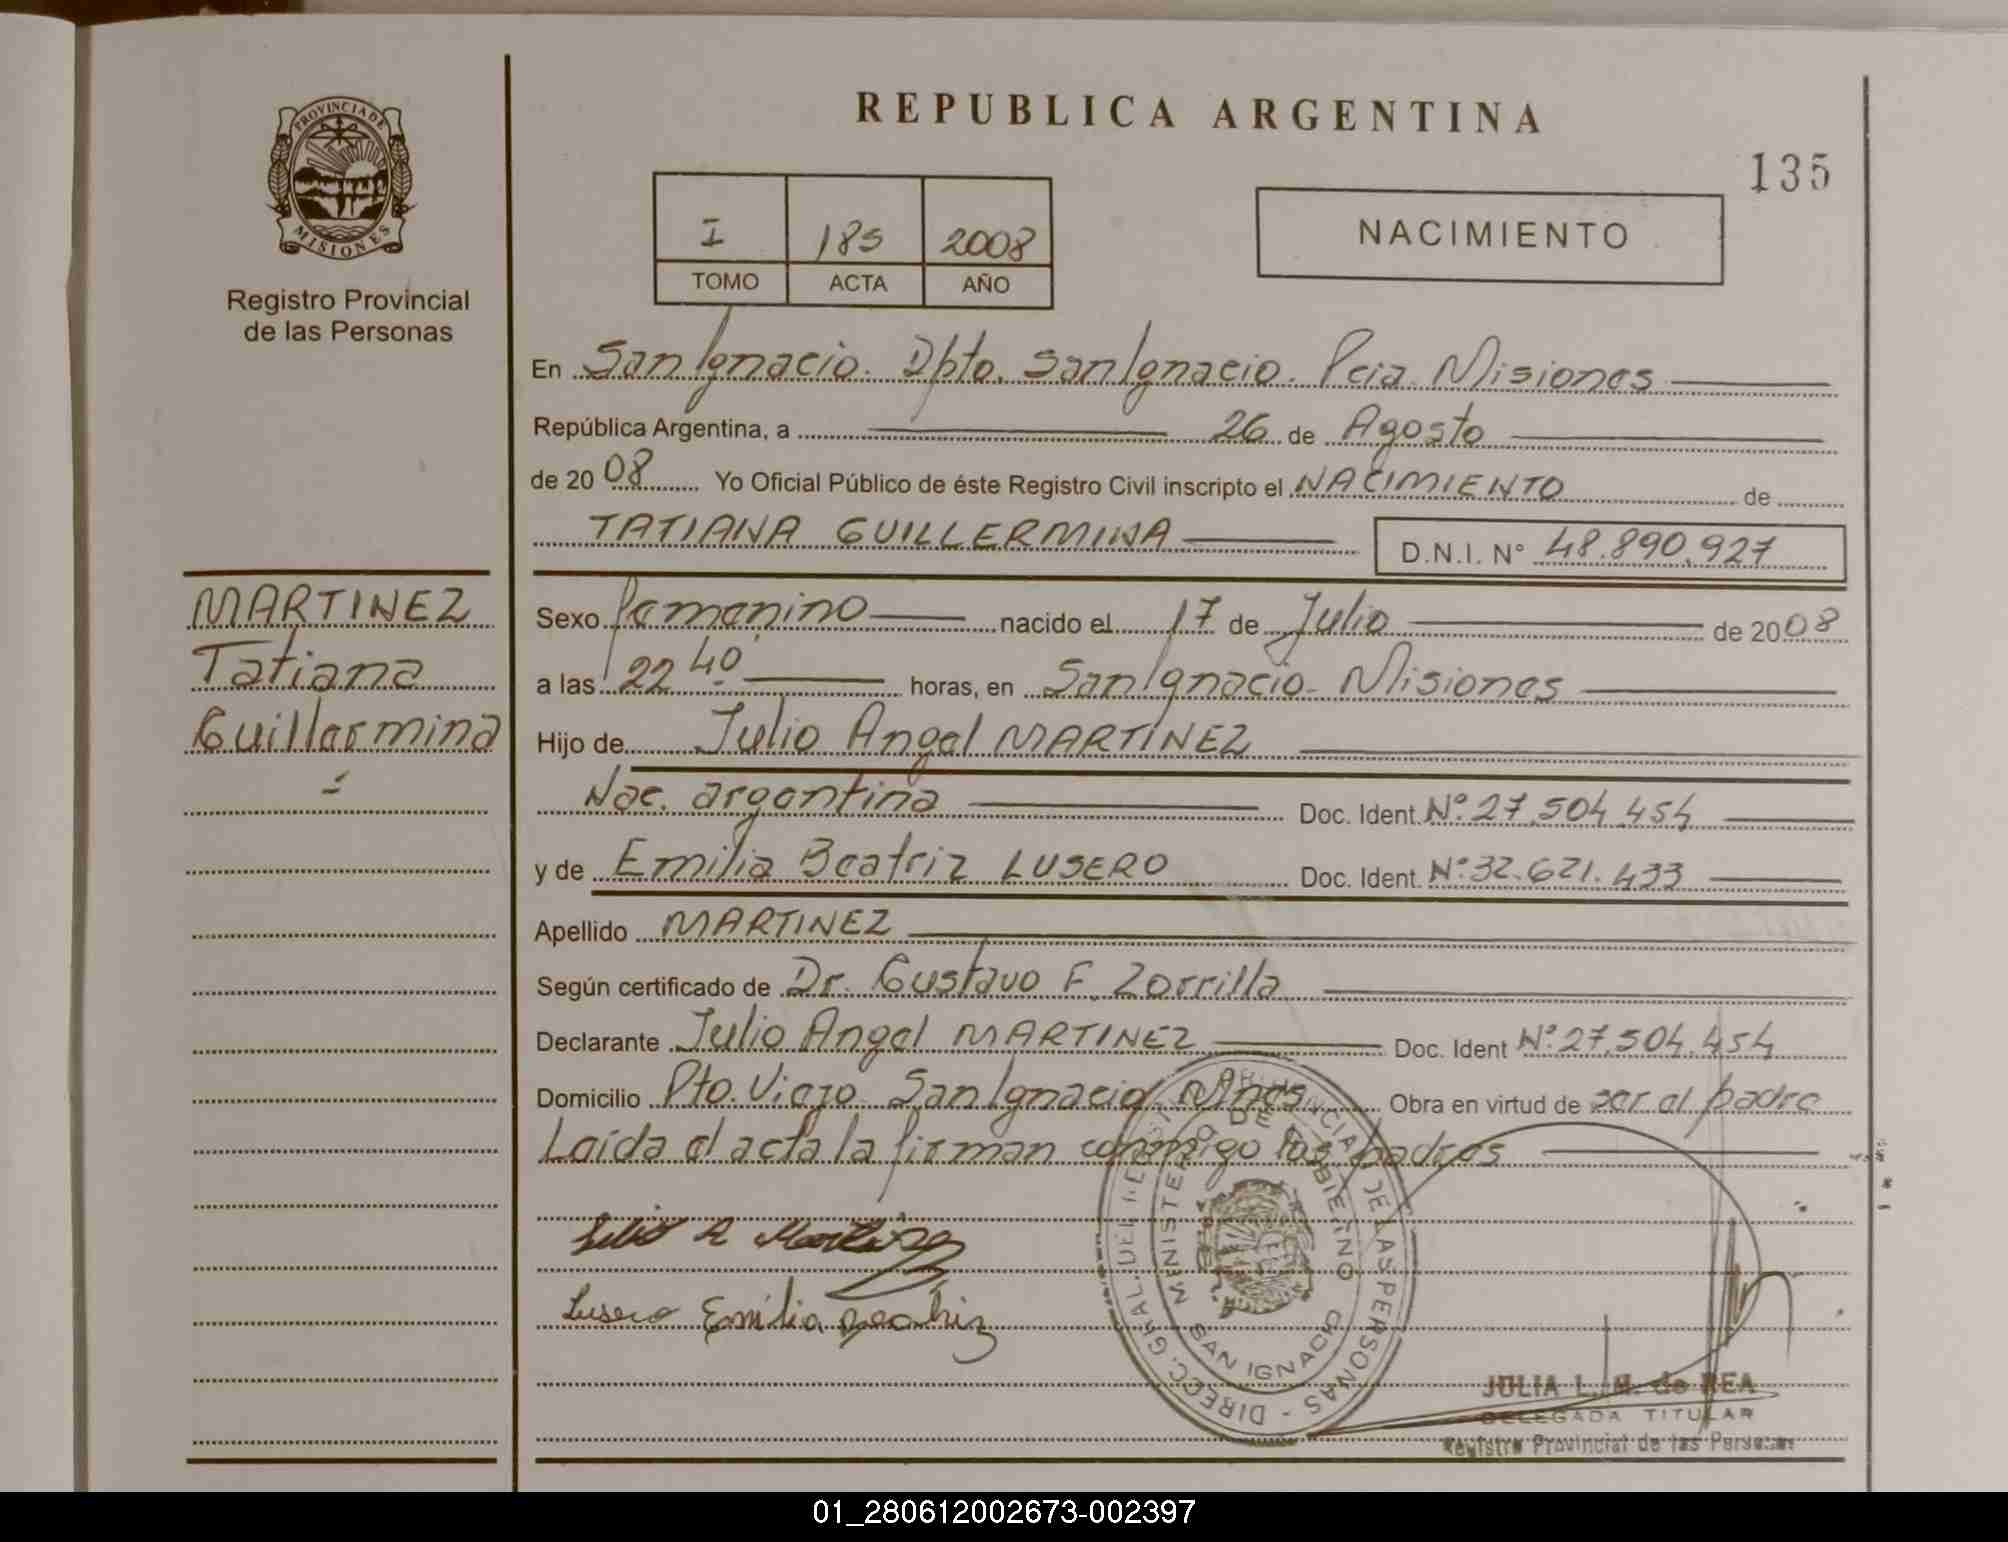 REPUBLICA ARGENTINA
135
PROVINCIA DE
MISIONES
Registro Provincial
de las Personas
I 185 2008
TOMO ACTA AÑO
NACIMIENTO
En San Ignacio. Dpto. San Ignacio. Pcia. Misiones
República Argentina, a 26 de Agosto
de 2008 Yo Oficial Público de éste Registro Civil inscripto el NACIMIENTO de
TATIANA GUILLERMINA D.N.I. N° 48.890.927
MARTINEZ
Tatiana
Guillermina
Sexo femenino nacido el 17 de Julio de 2008
a las 22 40 horas, en San Ignacio - Misiones
Hijo de Julio Angel MARTINEZ
Nac. argentina Doc. Ident. N° 27.504.454
y de Emilia Beatriz LUSERO Doc. Ident. N° 32.621.433
Apellido MARTINEZ
Según certificado de Dr. Gustavo F. Zorrilla
Declarante Julio Angel MARTINEZ Doc. Ident N° 27.504.454
Domicilio Pto. Viejo San Ignacio Mnes Obra en virtud de ser el padre
Leída el acta la firman conmigo los padres
Julio A Martinez
Lusero Emilia Beatriz
DIRECC. GRAL. DEL REGISTRO PROVINCIAL DE LAS PERSONAS
MINISTERIO DE GOBIERNO
SAN IGNACIO
JULIA L. M. de REA
DELEGADA TITULAR
Registro Provincial de las Personas
01_280612002673-002397